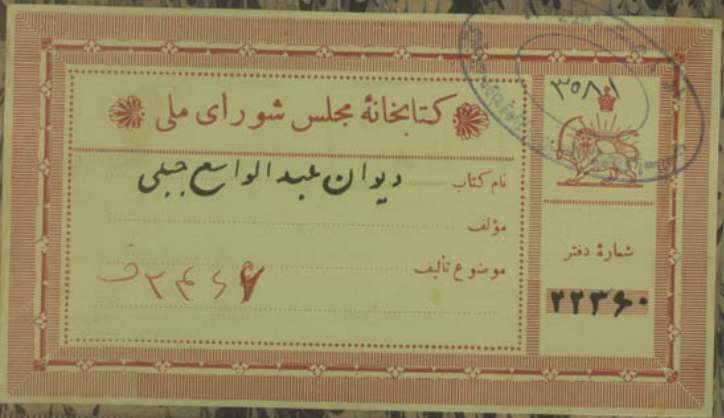 کتابخانهٔ مجلس شورای ملی
نام کتاب دیوان عبد الواسع جبلی
مؤلف
موضوع تألیف
۳۵۸۱
شمارهٔ دفتر
۲۲۳۶۰